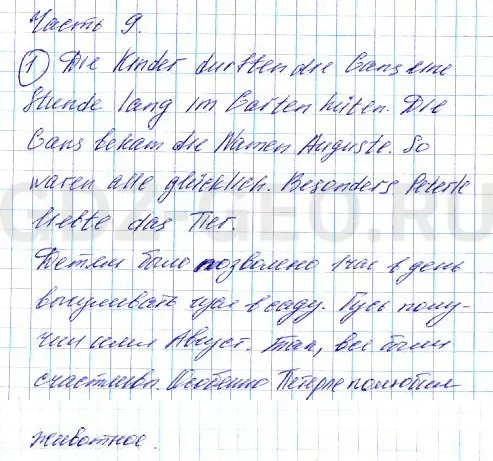 Часть 9.
1 Die Kinder durften die Gans eine
Stunde lang im Garten hüten. Die
Gans bekam die Namen Auguste. So
waren alle glücklich. Besonders Peterle
liebte das Tier.
Детям было позволено 1 час в день
выгуливать гуся в саду. Гусь полу-
чил имя Август. Так, все были
счастливы. Особенно Петерле полюбил
животное.
GDZGEO.RU